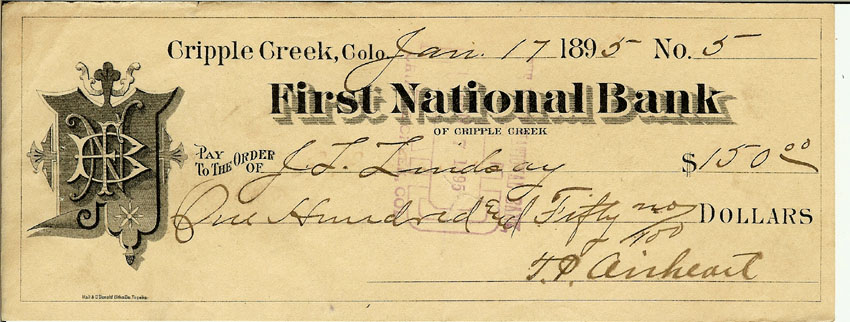 Cripple Creek, Colo. Jan. 17 1895 No. 5
First National Bank
OF CRIPPLE CREEK
PAY TO THE ORDER OF J L Lindsay $150 00
One Hundred & Fifty no/100 DOLLARS
T.P. Airheart
Hall & O'Donald Litho. Co. Topeka.